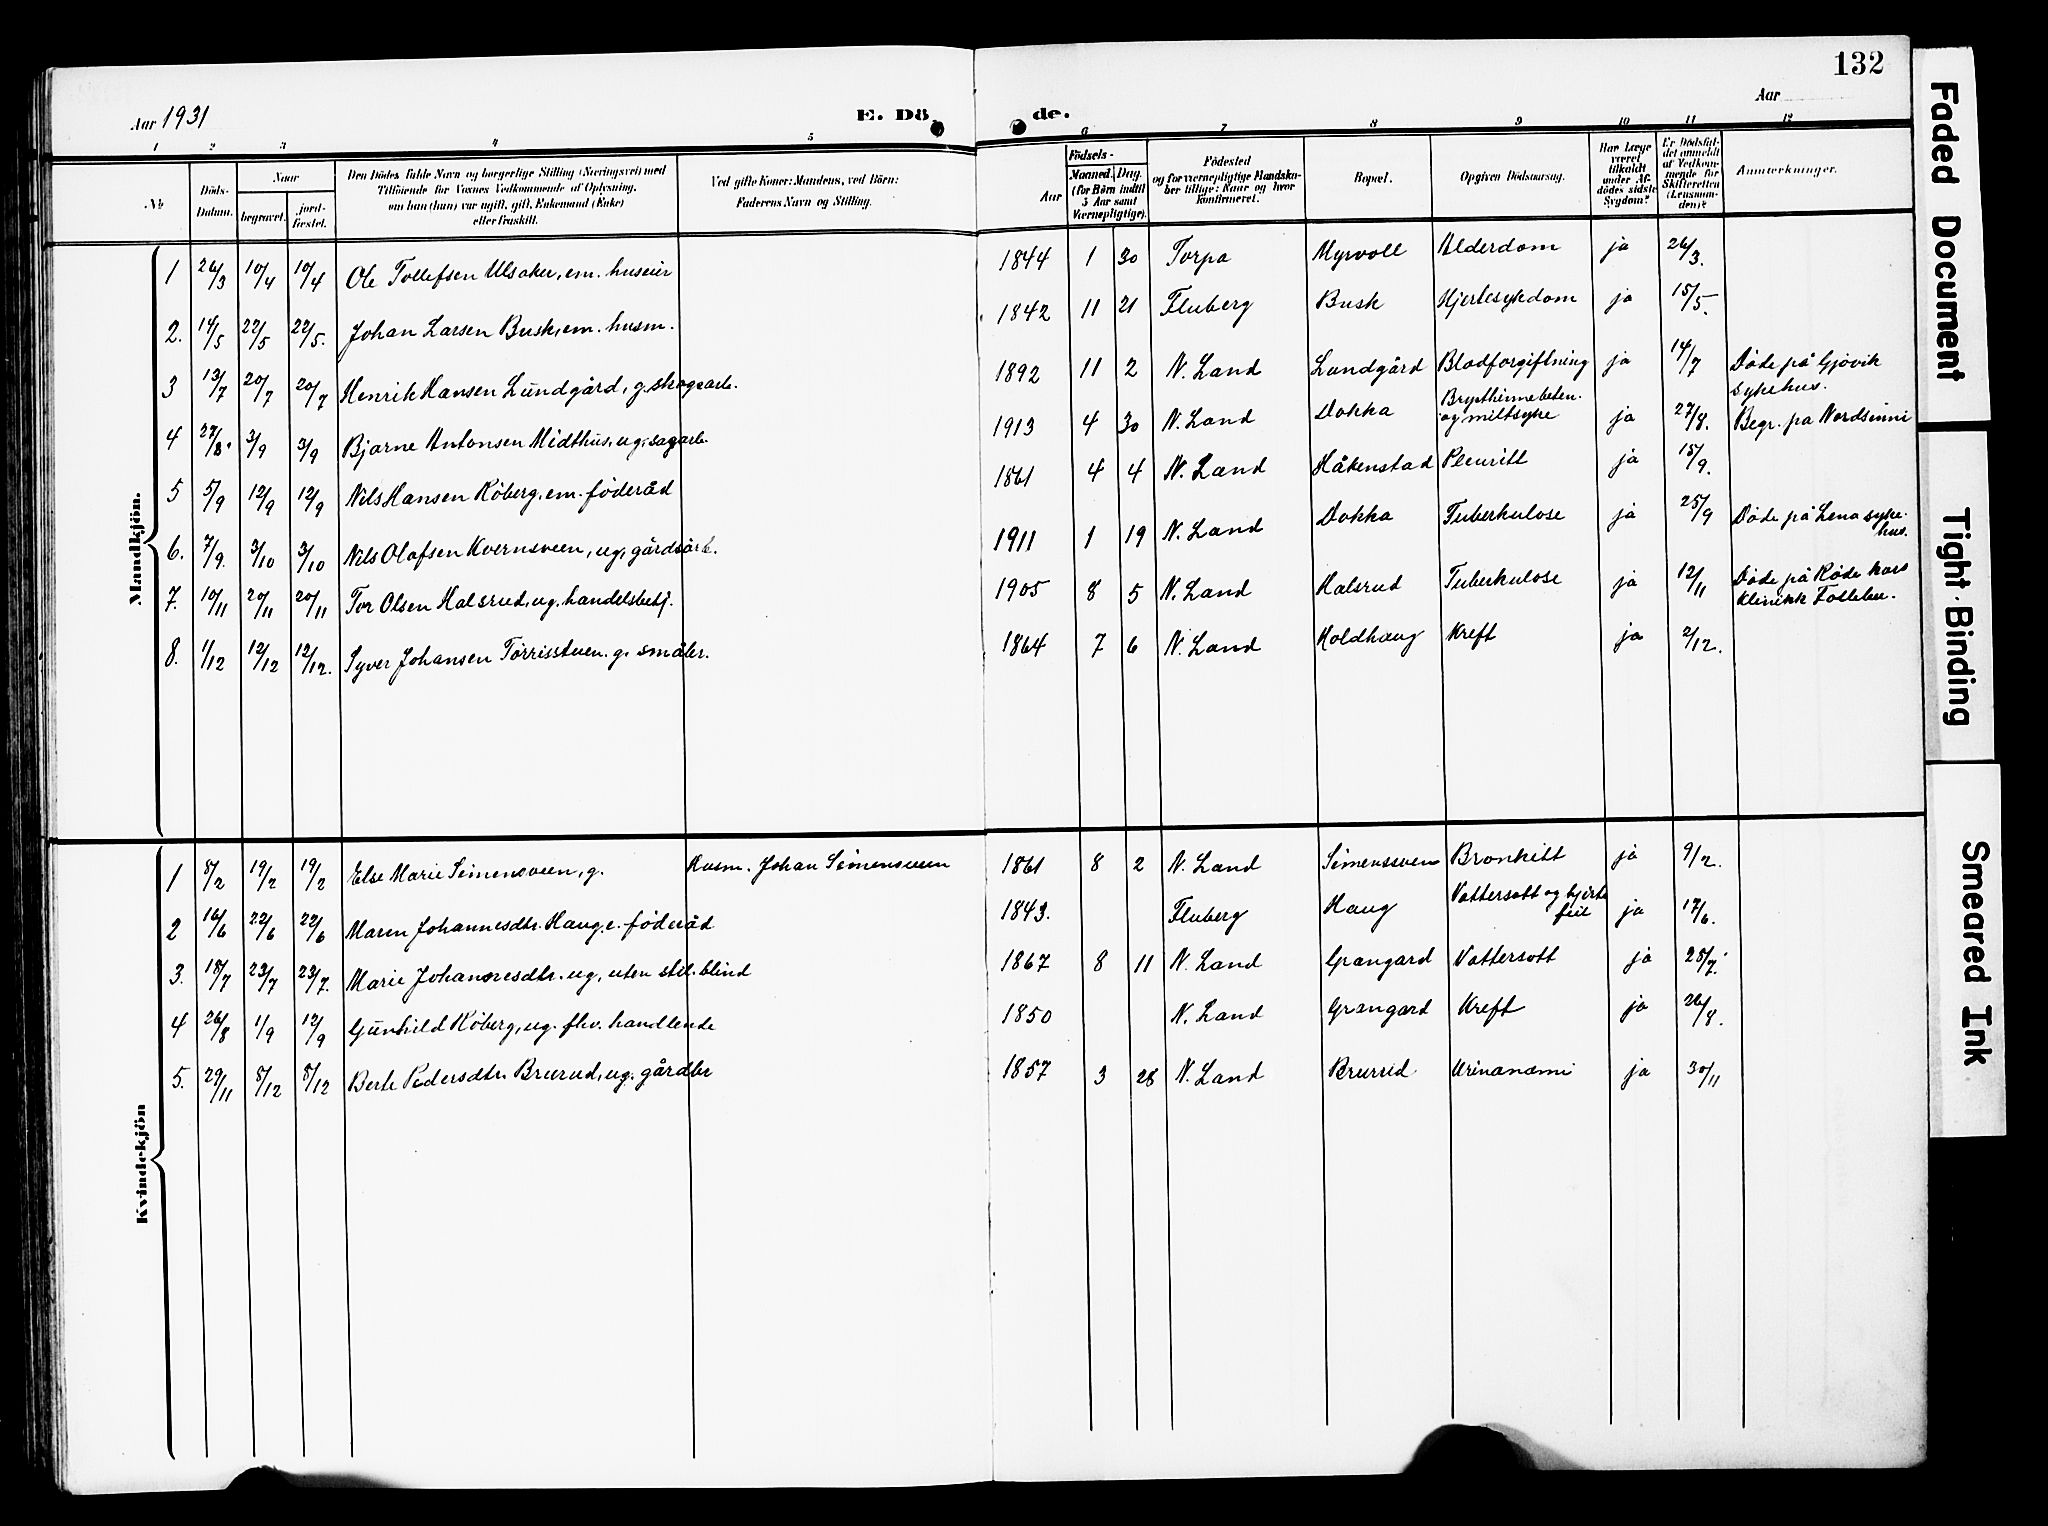 132
Aar 1931
E. Dö de.
Aar
1 2 3 4 5 6 7 8 9 10 11 12
No
Döds-Datum.
Naar
begravet.
jord-fæstet.
Den Dödes fulde Navn og borgerlige Stilling (Næringsvei) med
Tilföiende for Voxnes Vedkommende af Oplysning,
om han (hun) var ugift, gift, Enkemand (Enke)
eller fraskilt.
Ved gifte Koner: Mandens, ved Börn:
Faderens Navn og Stilling.
Födsels-
Aar
Maaned. Dag.
(for Börn indtil
5 Aar samt
Værnepligtige).
Födested
og for værnepligtige Mandska-
ber tillige: Naar og hvor
konfirmeret.
Bopæl.
Opgiven Dödsaarsag.
Har Læge
været
tilkaldt
under Af-
dödes sidste
Sygdom?
Er Dödsfal-
det anmeldt
af Vedkom-
mende for
Skifteretten
(Lensman-
den)?
Anmærkninger.
Mandkjön.
1 26/3 10/4 10/4 Ole Tollefsen Ulsaker, em. huseier 1844 1 30 Torpa Myrvoll Alderdom ja 26/3.
2. 14/5 22/5 22/5. Johan Larsen Busk, em. husm. 1842 11 21 Fluberg Busk Hjertesykdom ja 15/5.
3 13/7 20/7 20/7 Henrik Hansen Lundgård, g. skogsarb. 1892 11 2 N. Land Lundgård Blodforgiftning ja 14/7 Døde på Gjøvik
sykehus.
4 27/8. 3/9 3/9 Bjarne Antonsen Midthus, ug. sagarb. 1913 4 30 N. Land Dokka Brysthinnebeten-
og miltsyke ja 27/8. Begr. på Nordsinni
5 5/9 12/9 12/9 Nils Hansen Røberg, em. føderåd 1861 4 4 N. Land Håkenstad Pleuritt ja 15/9.
6. 7/9. 3/10 3/10 Nils Olafsen Kvernsveen, ug, gårdsarb. 1911 1 19 N. Land Dokka Tuberkulose ja 25/9 Døde på Lena syke-
hus.
7. 10/11 20/11 20/11 Tor Olsen Halsrud, ug. handelsbetj. 1905 8 5 N. Land Halsrud Tuberkulose ja 12/11 Døde på Røde kors
klinikk Follebu.
8. 1/12 12/12 12/12. Syver Johansen Tørrisstuen. g. småbr. 1864 7 6 N. Land Holdhaug Kreft ja 2/12.
Kvindekjön
1 8/2 19/2 19/2 Else Marie Simensveen, g. Husm. Johan Simensveen 1861 8 2 N. Land Simenssven Bronkitt ja 9/2.
2 16/6 22/6 22/6 Maren Johannesdtr. Haug, e. føderåd 1843. Fluberg Haug Vattersott og hjerte
feil ja 17/6.
3. 18/7 23/7 23/7. Marie Johannesdtr. ug, uten stil. blind 1867 8 11 N. Land Grangard Vattersott ja 25/7.
4 26/8 1/9 12/9 Gunhild Røberg, ug. fhv. handlende 1850 N. Land Grangard Kreft ja 26/8.
5. 29/11 8/12 8/12 Berte Pedersdtr. Brurud, ug. gårdbr 1857 3 28 N. Land Brurud Urinanæmi ja 30/11
Faded Document
Tight Binding
Smeared Ink